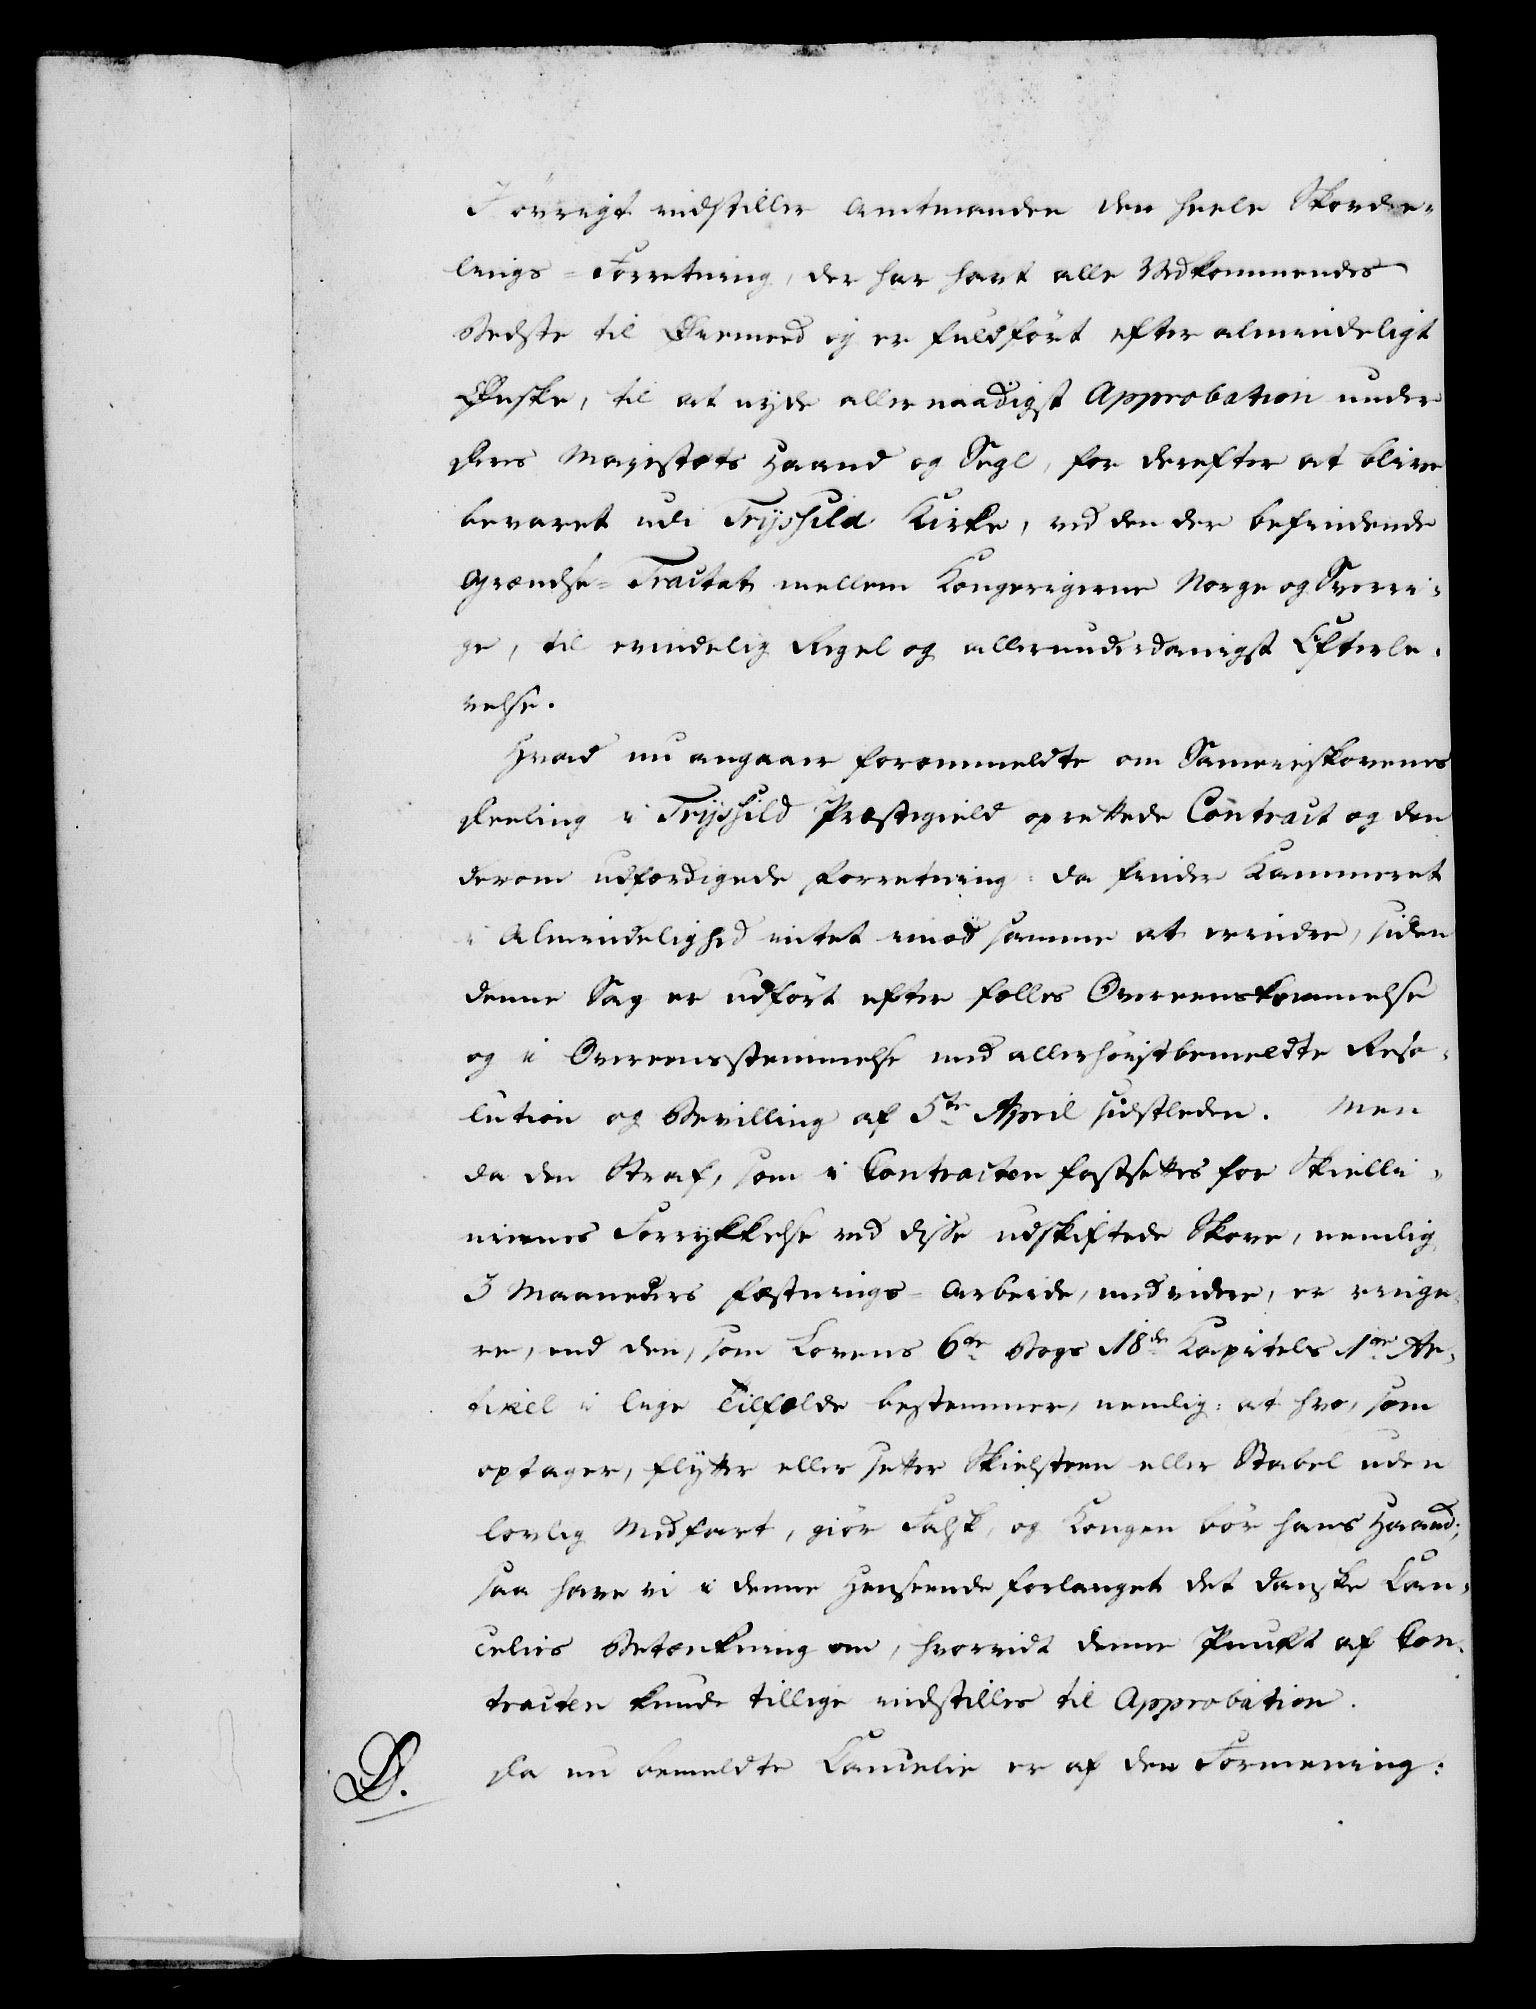 I övrigt indstiller Amtmanden den heele Skovdee-
lings-Forretning, der har havt alle Vedkommendes
Bedste til Øiemeed og er fuldfört efter almindeligt
Ønske, til at nyde allernaadigst Approbation under
Deres Majestæts Haand og Segl, for derefter at blive
bevaret udi Trijssild Kirke, ved den der befindende
Grændse-Tractat mellem Kongerigerne Norge og Sverri-
ge, til evindelig Regel og allerunderdanigst Efterle-
velse.
Hvad nu angaaer forommeldte om Sameieskovenes
Deeling i Trijssild Præstegield oprettede Contract og den
derom udfærdigede Forretning: da finder Kammeret
i Almindelighed intet imod samme at erindre, siden
denne Sag er udfört efter fælles Overeenskommelse
og i Overeensstemmelse med allerhöistbemeldte Reso-
lution og Bevilling af 5te April sidstleden. Men
da den Straf, som i Contracten fastsættes for Skielli-
niernes Forrykkelse ved disse udskiftede Skove, nemlig
3 Maaneders Fæstnings-Arbeide, med videre, er ringe-
re, end den, som Lovens 6te Bogs 18de Kapitels 1ste Ar-
tikel i lige Tilfælde bestemmer, nemlig: at hvo, som
optager, flytter eller sætter Skielsteen eller Stabel uden
lovlig Medfart, giör Falsk, og Kongen bör hans Haand;
saa have vi i denne Henseende forlanget det danske Can-
celies Betænkning om, hvorvidt denne Punkt af Con-
tracten kunde tillige indstilles til Approbation.
D. Da nu bemeldte Cancelie er af den Formening: